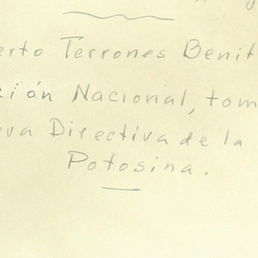 erto Terrones Benit
ión Nacional, tom
va Directiva de la
Potosina.